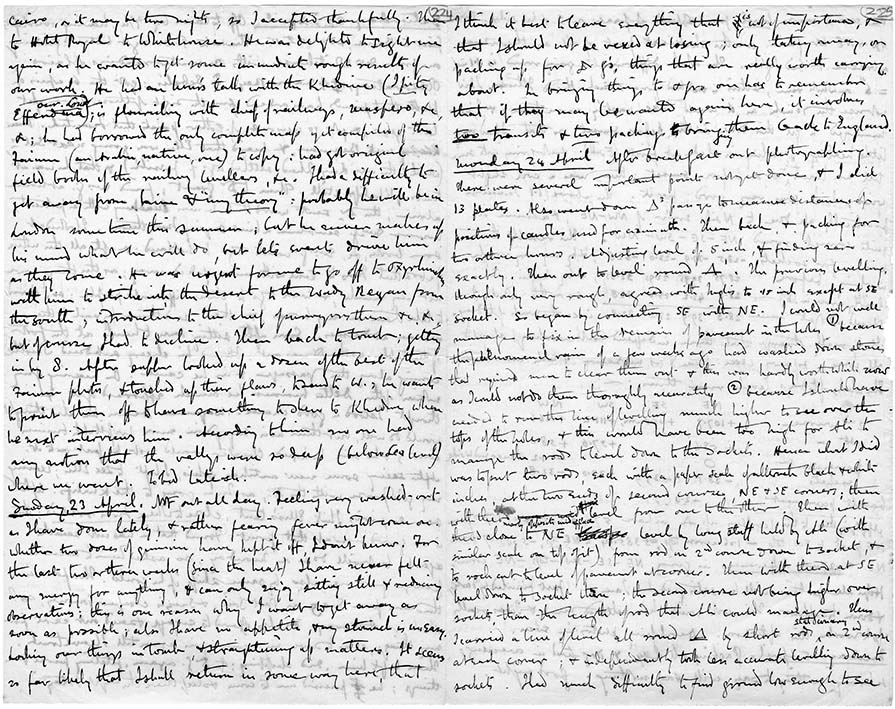 224
Cairo, or it may be two nights, so I accepted thankfully. Then
to Hotel Royal to Whitehouse. He was delighted to sight me
again, as he wanted to get some immediate rough results of
our work. He had an hour's talk with the Khedive (I pity
our Lord
Effendina); is flourishing with chief of railways, Maspero, &c,
&c; he had borrowed the only complete map yet compiled of the
Faium (an Arabic, native, one) to copy: had got original
field books of the railway levellers, &c. I had a difficulty to
get away from him & his theory: probably he will be in
London some time this summer; but he never makes up
his mind what he will do, but lets events drive him
as they come. He was urgent for me to go off to
with him to strike into the desert to the Wady Reyan from
the South; introductions to the chief personages there &c. &c.
but of course I had to decline. Then back to tomb; getting
in by 8. After supper looked up a dozen of the best of the
Faium plates, & touched up their flaws, to send to W.; he wants
to print them off & have something to show to Khedive when
he next interviews him. According to him no one had
any notion that the valleys were so deep (below sea level)
where we went. To bed late-ish.
Sunday 23 April. Not out all day. Feeling very washed-out
as I have done lately, & rather fearing fever might come on.
Whether two doses of quinine have kept it off, I don't know. For
the last two or three weeks (since the heat) I have never felt
any energy for anything, & can only enjoy sitting still & reducing
observations; this is one reason why I want to get away as
soon as possible; also I have no appetite, & my stomach is uneasy.
Looking over things in tomb, & straightening up matters. It seems
so far likely that I shall return in some way here, that
225
I think it best to leave everything that is not of importance, &
that I should not be vexed at losing; only taking away, or
packing up for things that are really worth carrying
about. In bringing things to & fro one has to remember
that if they may be wanted again here, it involves
two transits & two packings to bring them back to England.
Monday 24 April. After breakfast out photographing.
There were several important points not yet done, & I did
13 plates. Also went down Δ's passage to measure distances of
positions of candles used for azimuth. Then back, & packing for
two or three hours. Adjusting level of 5 inch, & finding
exactly. Then out to level round Δ. The previous levelling,
though only very rough, agreed with highs to inch except at SE
socket. So began by connecting SE with NE. I could not well
manage to fix in the remains of pavement in the holes ① because
the phenomenal rain of a few weeks ago had washed down stones
that required men to clear them out & this was hardly worth while now
as I could not do them thoroughly accurately ② because I should have
need to run the line of levelling much higher to see over the
tops of the holes, & this would have been too high for Ali to
manage the rods to level down to the sockets. Hence what I did
was to put two rods each with a paper scale of alternate black & white
inches, at the two ends of second course, NE & SE corners; then
with theod. level from one to the other. Then with
theod close to NE level by long staff held by Ali (with
similar scale on top of it) from rod on 2nd course down to socket, &
to rock cut to level of pavement at corner. Then with theod at SE
level down to socket there; the second course not being higher over
sockets than the length of rod that Ali could manage. Thus
I carried a line of level all round Δ to short rods, stationary on 2nd course
at each corner; & independently took less accurate levelling down to
sockets. I had much difficulty to find ground low enough to see